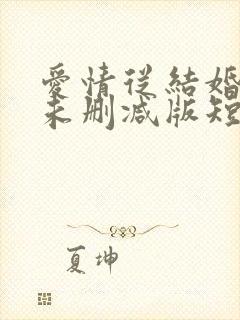 愛情從結婚
未刪減版短
夏坤